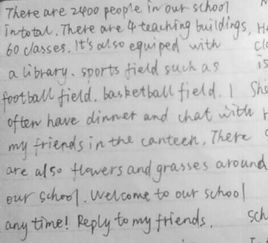 There are 2400 people in our school
in total. There are 4 teaching buildings,
60 classes. It's also equiped with
a library. sports field such as
football field. basketball field. I
often have dinner and chat with
my friends in the canteen. There
are also flowers and grasses around
our school. Welcome to our school
any time! Reply to my friends.
She
sch